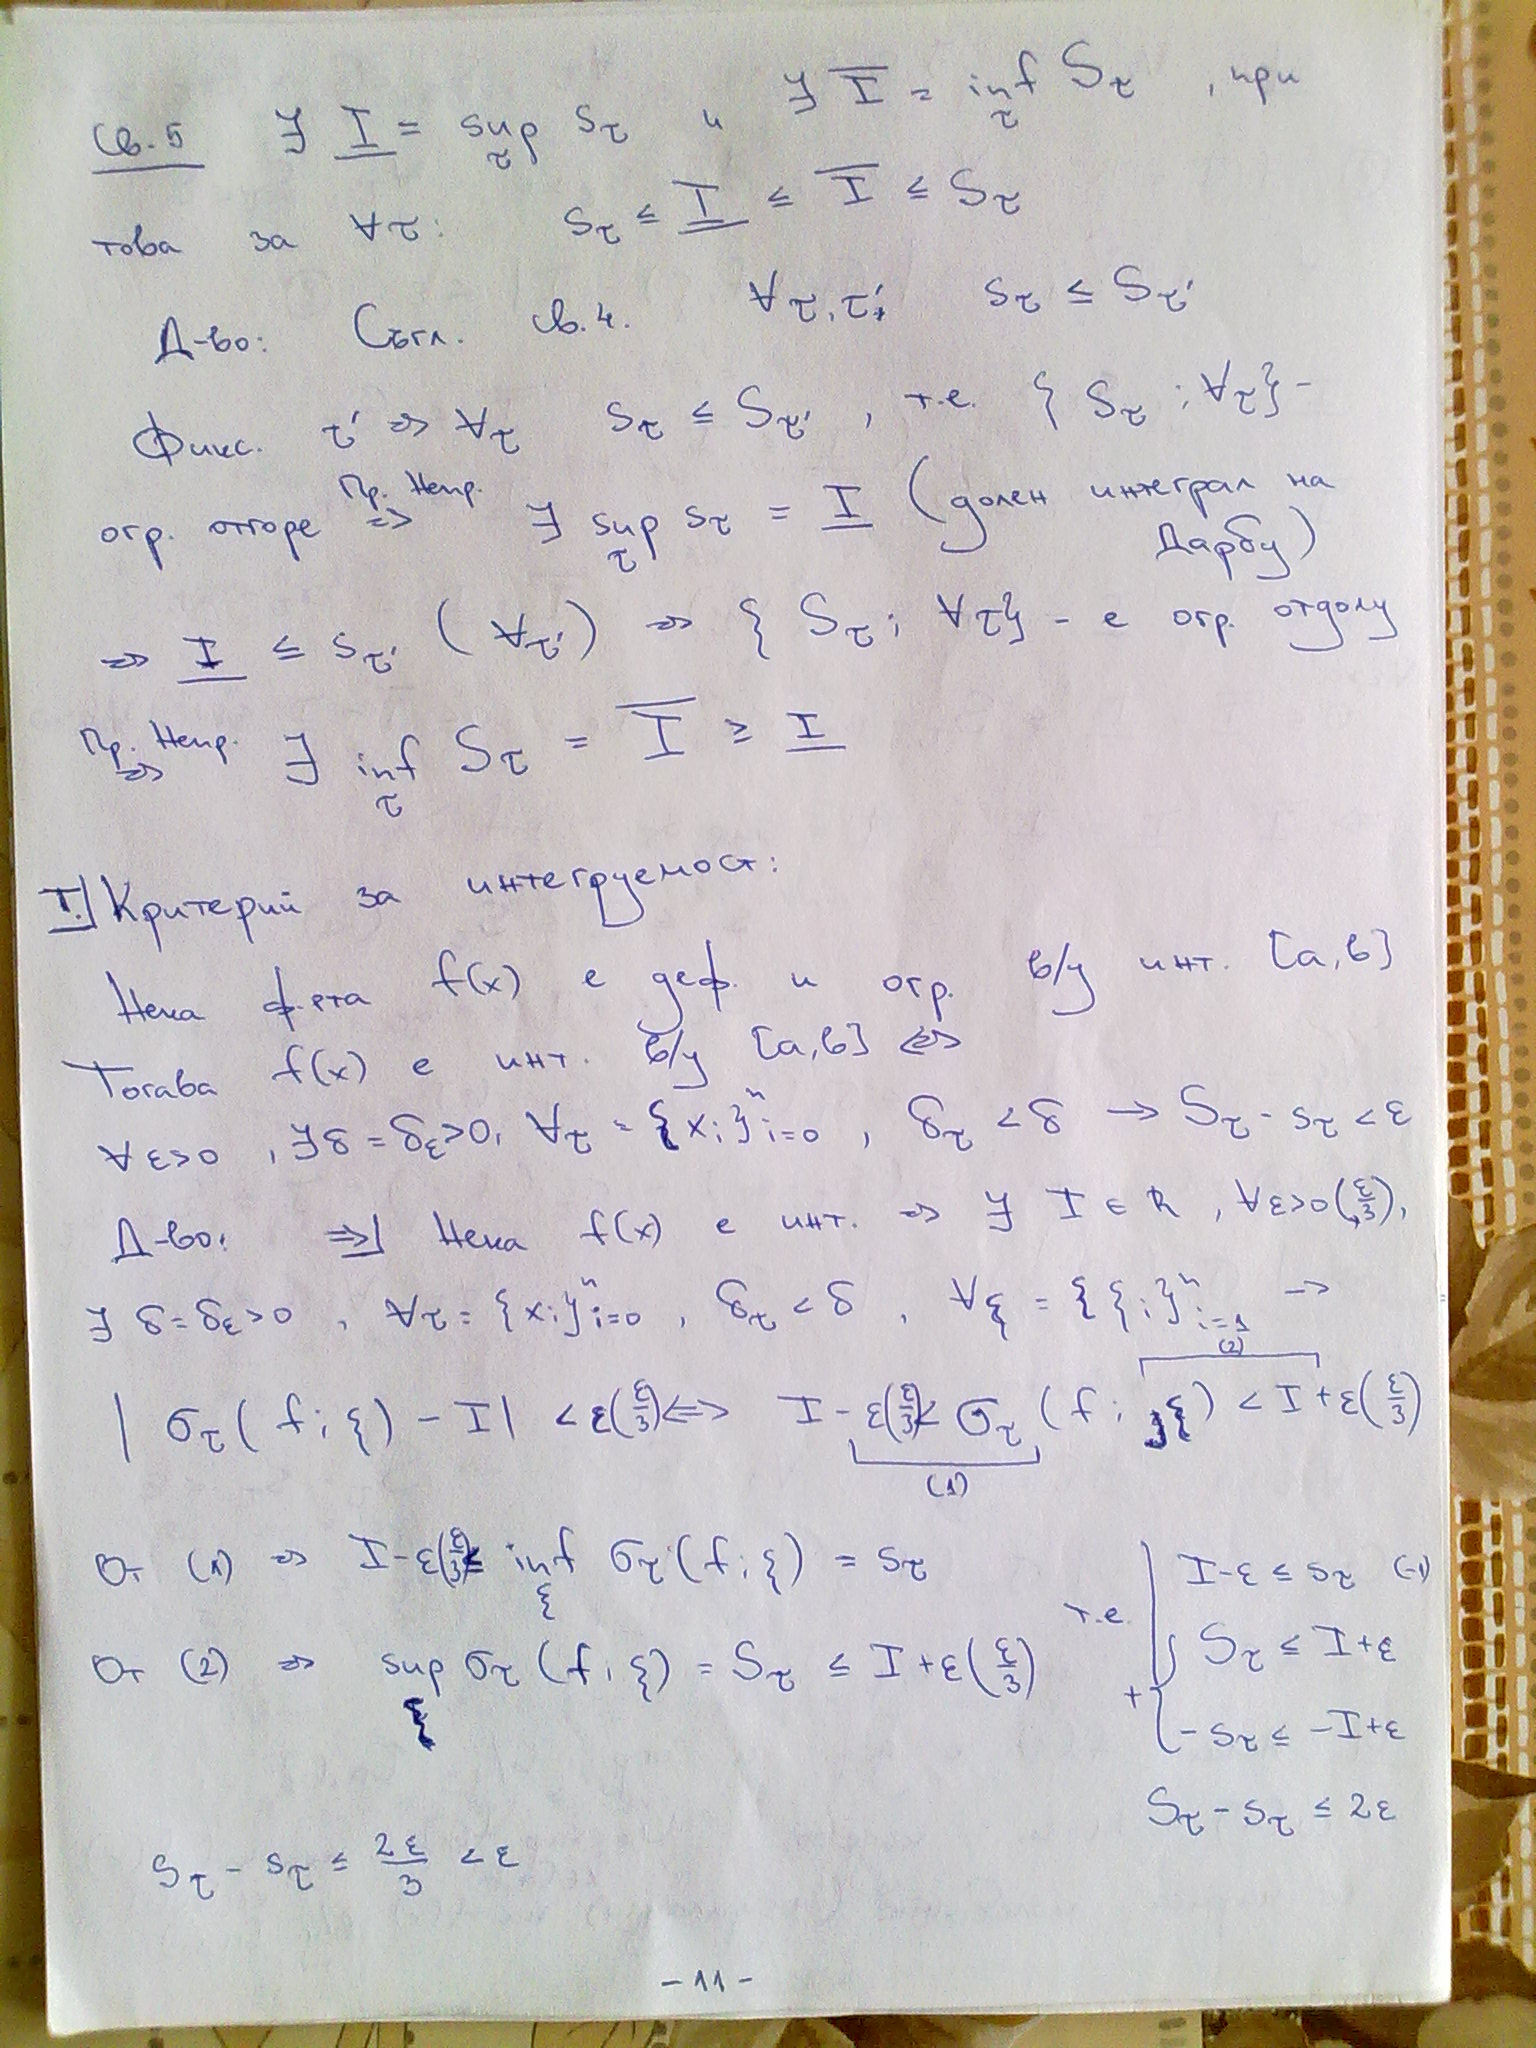 Св. 5 ∃ I̲ = sup_τ s_τ и ∃ I̅ = inf_τ S_τ , при
това за ∀τ: s_τ ≤ I̲ ≤ I̅ ≤ S_τ
Д-во: Съгл. св. 4. ∀τ, τ', s_τ ≤ S_τ'
Фикс. τ' ⇒ ∀τ s_τ ≤ S_τ' , т.е. { s_τ ; ∀τ} -
огр. отгоре Пр. Непр. ⇒ ∃ sup_τ s_τ = I̲ (долен интеграл на
Дарбу)
⇒ I̲ ≤ s_τ' (∀τ') ⇒ { S_τ ; ∀τ} - е огр. отдолу
Пр. Непр. ⇒ ∃ inf_τ S_τ = I̅ ≥ I̲
Т.| Критерий за интегруемост:
Нека ф-ята f(x) е деф. и огр. в/у инт. [a,b]
Тогава f(x) е инт. в/у [a,b] ⇔
∀ε>0 , ∃δ = δ_ε>0, ∀τ = {x_i}ⁿ_i=0 , δ_τ < δ → S_τ - s_τ < ε
Д-во: ⇒| Нека f(x) е инт. ⇒ ∃ I ∈ R , ∀ε>0 (ε/3),
∃ δ = δ_ε>0 , ∀τ = {x_i}ⁿ_i=0 , δ_τ < δ , ∀ξ = {ξ_i}ⁿ_i=1 →
(2)
| σ_τ(f; ξ) - I| < ε(ε/3) ⇔ I - ε(ε/3) < σ_τ (f; ξ) < I + ε(ε/3)
(1)
От (1) ⇒ I - ε(ε/3) ≤ inf_ξ σ_τ(f; ξ) = s_τ
От (2) ⇒ sup_ξ σ_τ (f; ξ) = S_τ ≤ I + ε(ε/3)
т.е. I - ε ≤ s_τ (-1)
S_τ ≤ I + ε
+ - s_τ ≤ - I + ε
S_τ - s_τ ≤ 2ε
S_τ - s_τ ≤ 2ε/3 < ε
- 11 -